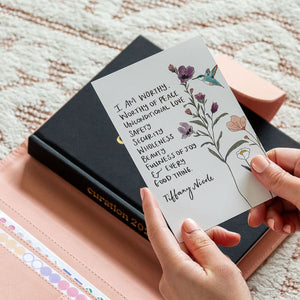 I AM WORTHY.
WORTHY OF PEACE
UNCONDITIONAL LOVE
SAFETY
SECURITY
WHOLENESS
BEAUTY
FULLNESS OF JOY
& EVERY
GOOD THING.
Tiffany Nicole
curation 202